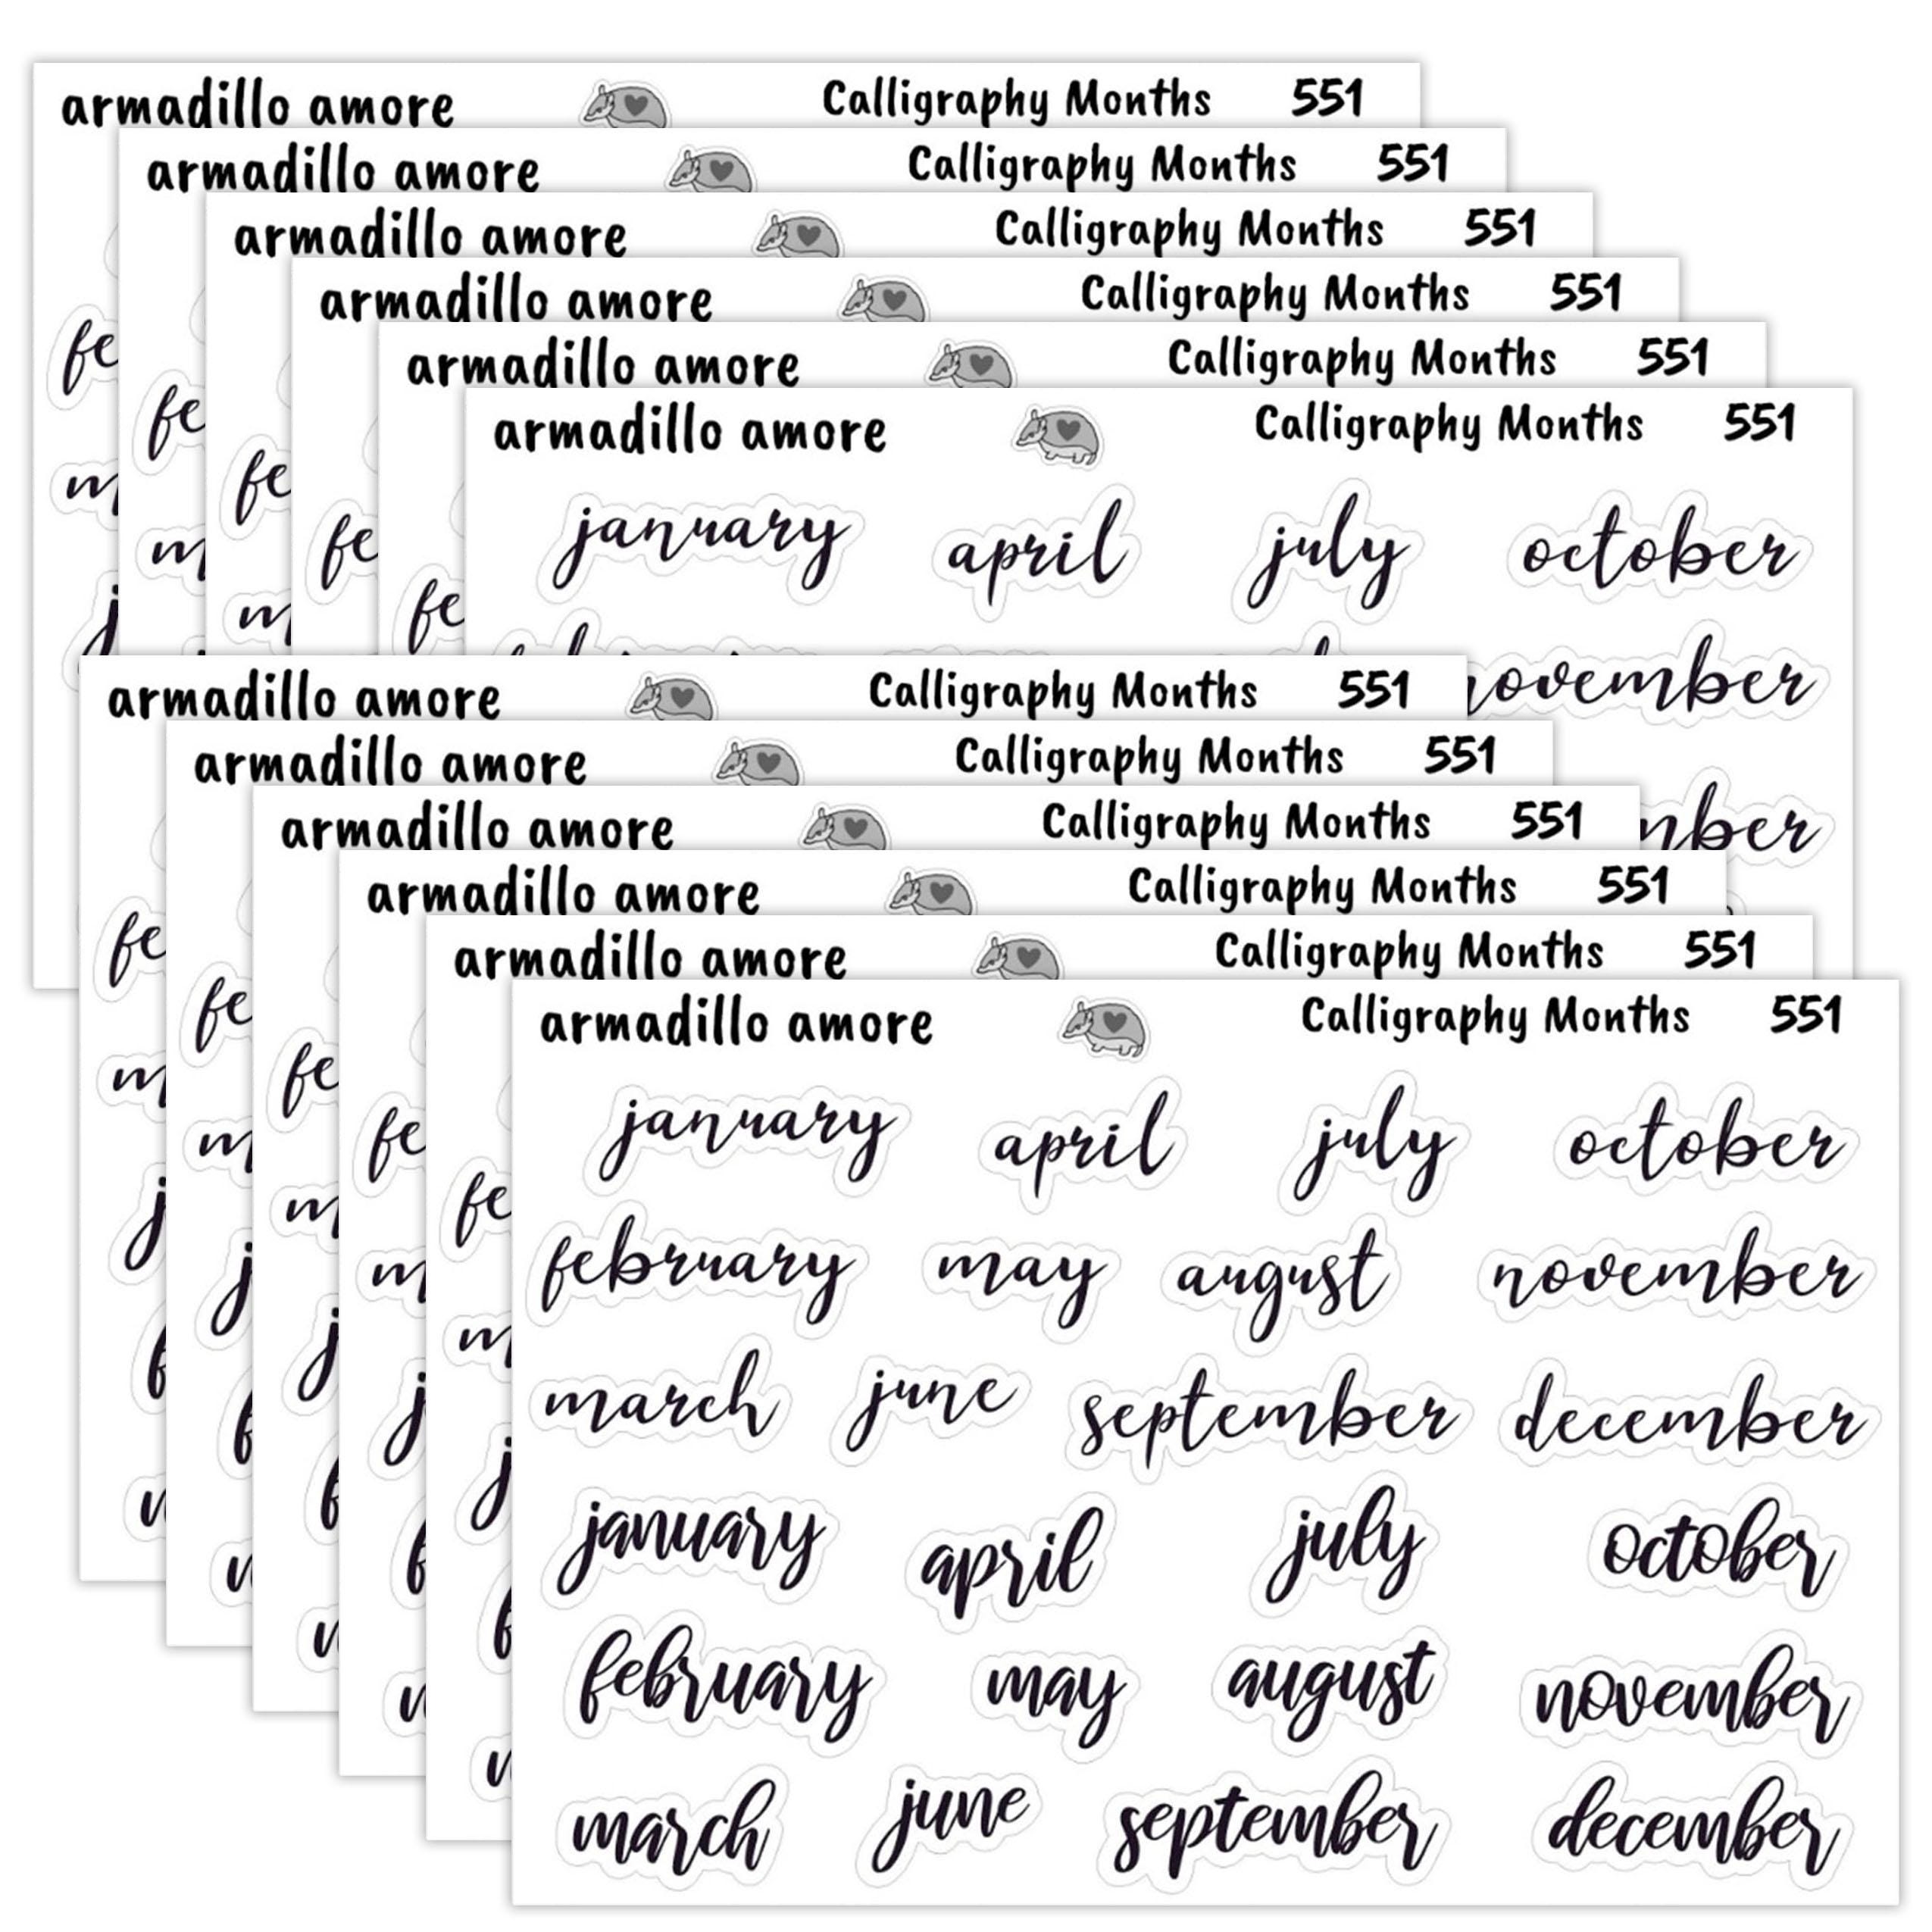 armadillo amore Calligraphy Months 551
armadillo amore Calligraphy Months 551
armadillo amore Calligraphy Months 551
armadillo amore Calligraphy Months 551
armadillo amore Calligraphy Months 551
armadillo amore Calligraphy Months 551
january april july october
november
armadillo amore Calligraphy Months 551
armadillo amore Calligraphy Months 551
armadillo amore Calligraphy Months 551
armadillo amore Calligraphy Months 551
armadillo amore Calligraphy Months 551
armadillo amore Calligraphy Months 551
january april july october
february may august november
march june september december
january april july october
february may august november
march june september december